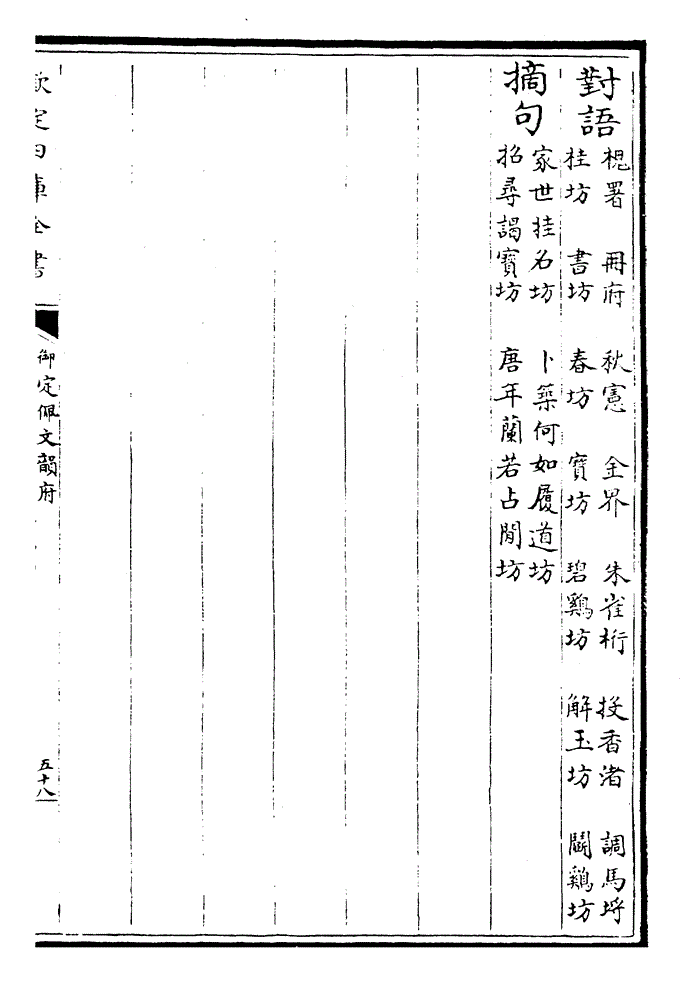 對語
槐署 冊府 秋憲 金界 朱雀桁 投香渚 調馬埒
桂坊 書坊 春坊 寶坊 碧鷄坊 解玉坊 鬭鷄坊
摘句
家世挂名坊 卜築何如履道坊
招尋謁寶坊 唐年蘭若占閒坊
欽定四庫全書
御定佩文韻府
五十八